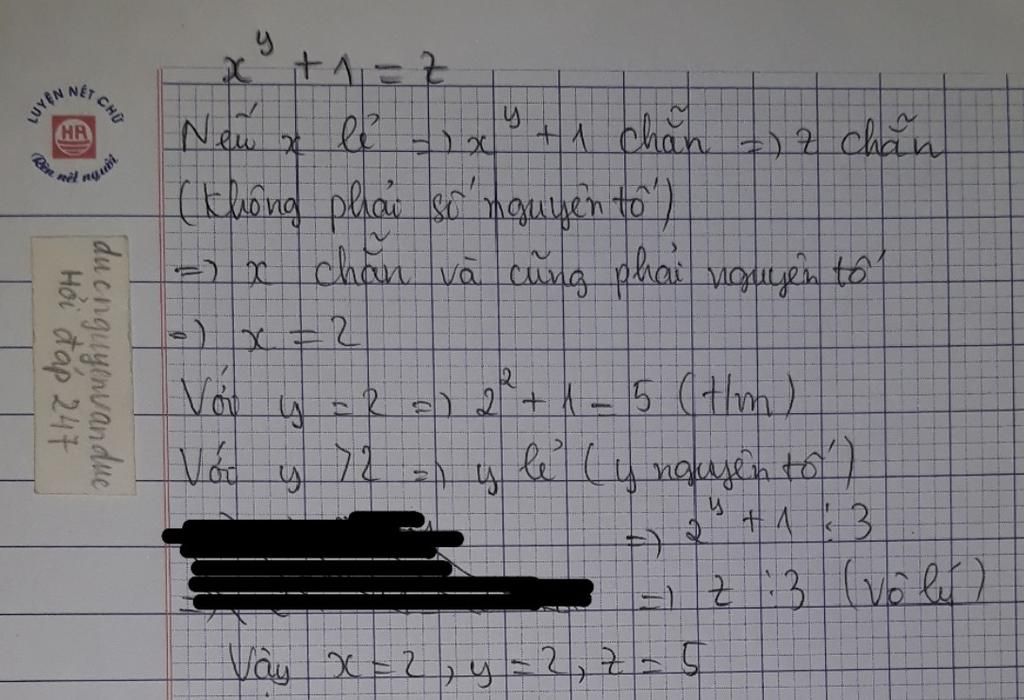 x^y + 1 = z
Nếu x lẻ => x^y + 1 chẵn => z chẵn
(Không phải số nguyên tố)
=> x chẵn và cũng phải nguyên tố
=> x = 2
Với y = 2 => 2^2 + 1 = 5 (t/m)
Với y > 2 => y lẻ (y nguyên tố)
=> 2^y + 1 ⋮ 3
=> z ⋮ 3 (Vô lý)
Vậy x = 2, y = 2, z = 5
LUYỆN NÉT CHỮ
HA
Rèn nết người
ducnguyenvanduc
Hỏi đáp 247